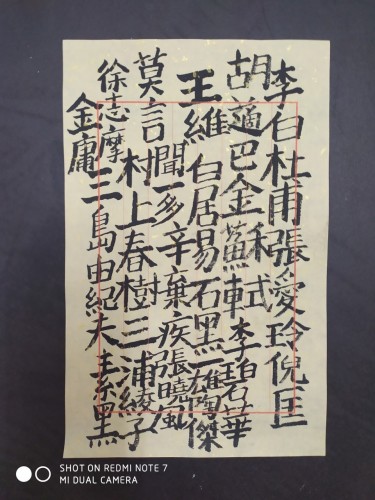 李白杜甫張愛玲倪匡
胡適巴金蘇軾李碧華
王維白居易石黑一雄陶傑
莫言聞一多辛棄疾張曉風
徐志摩村上春樹三浦綾子
金庸三島由紀夫素黑
SHOT ON REDMI NOTE 7
MI DUAL CAMERA